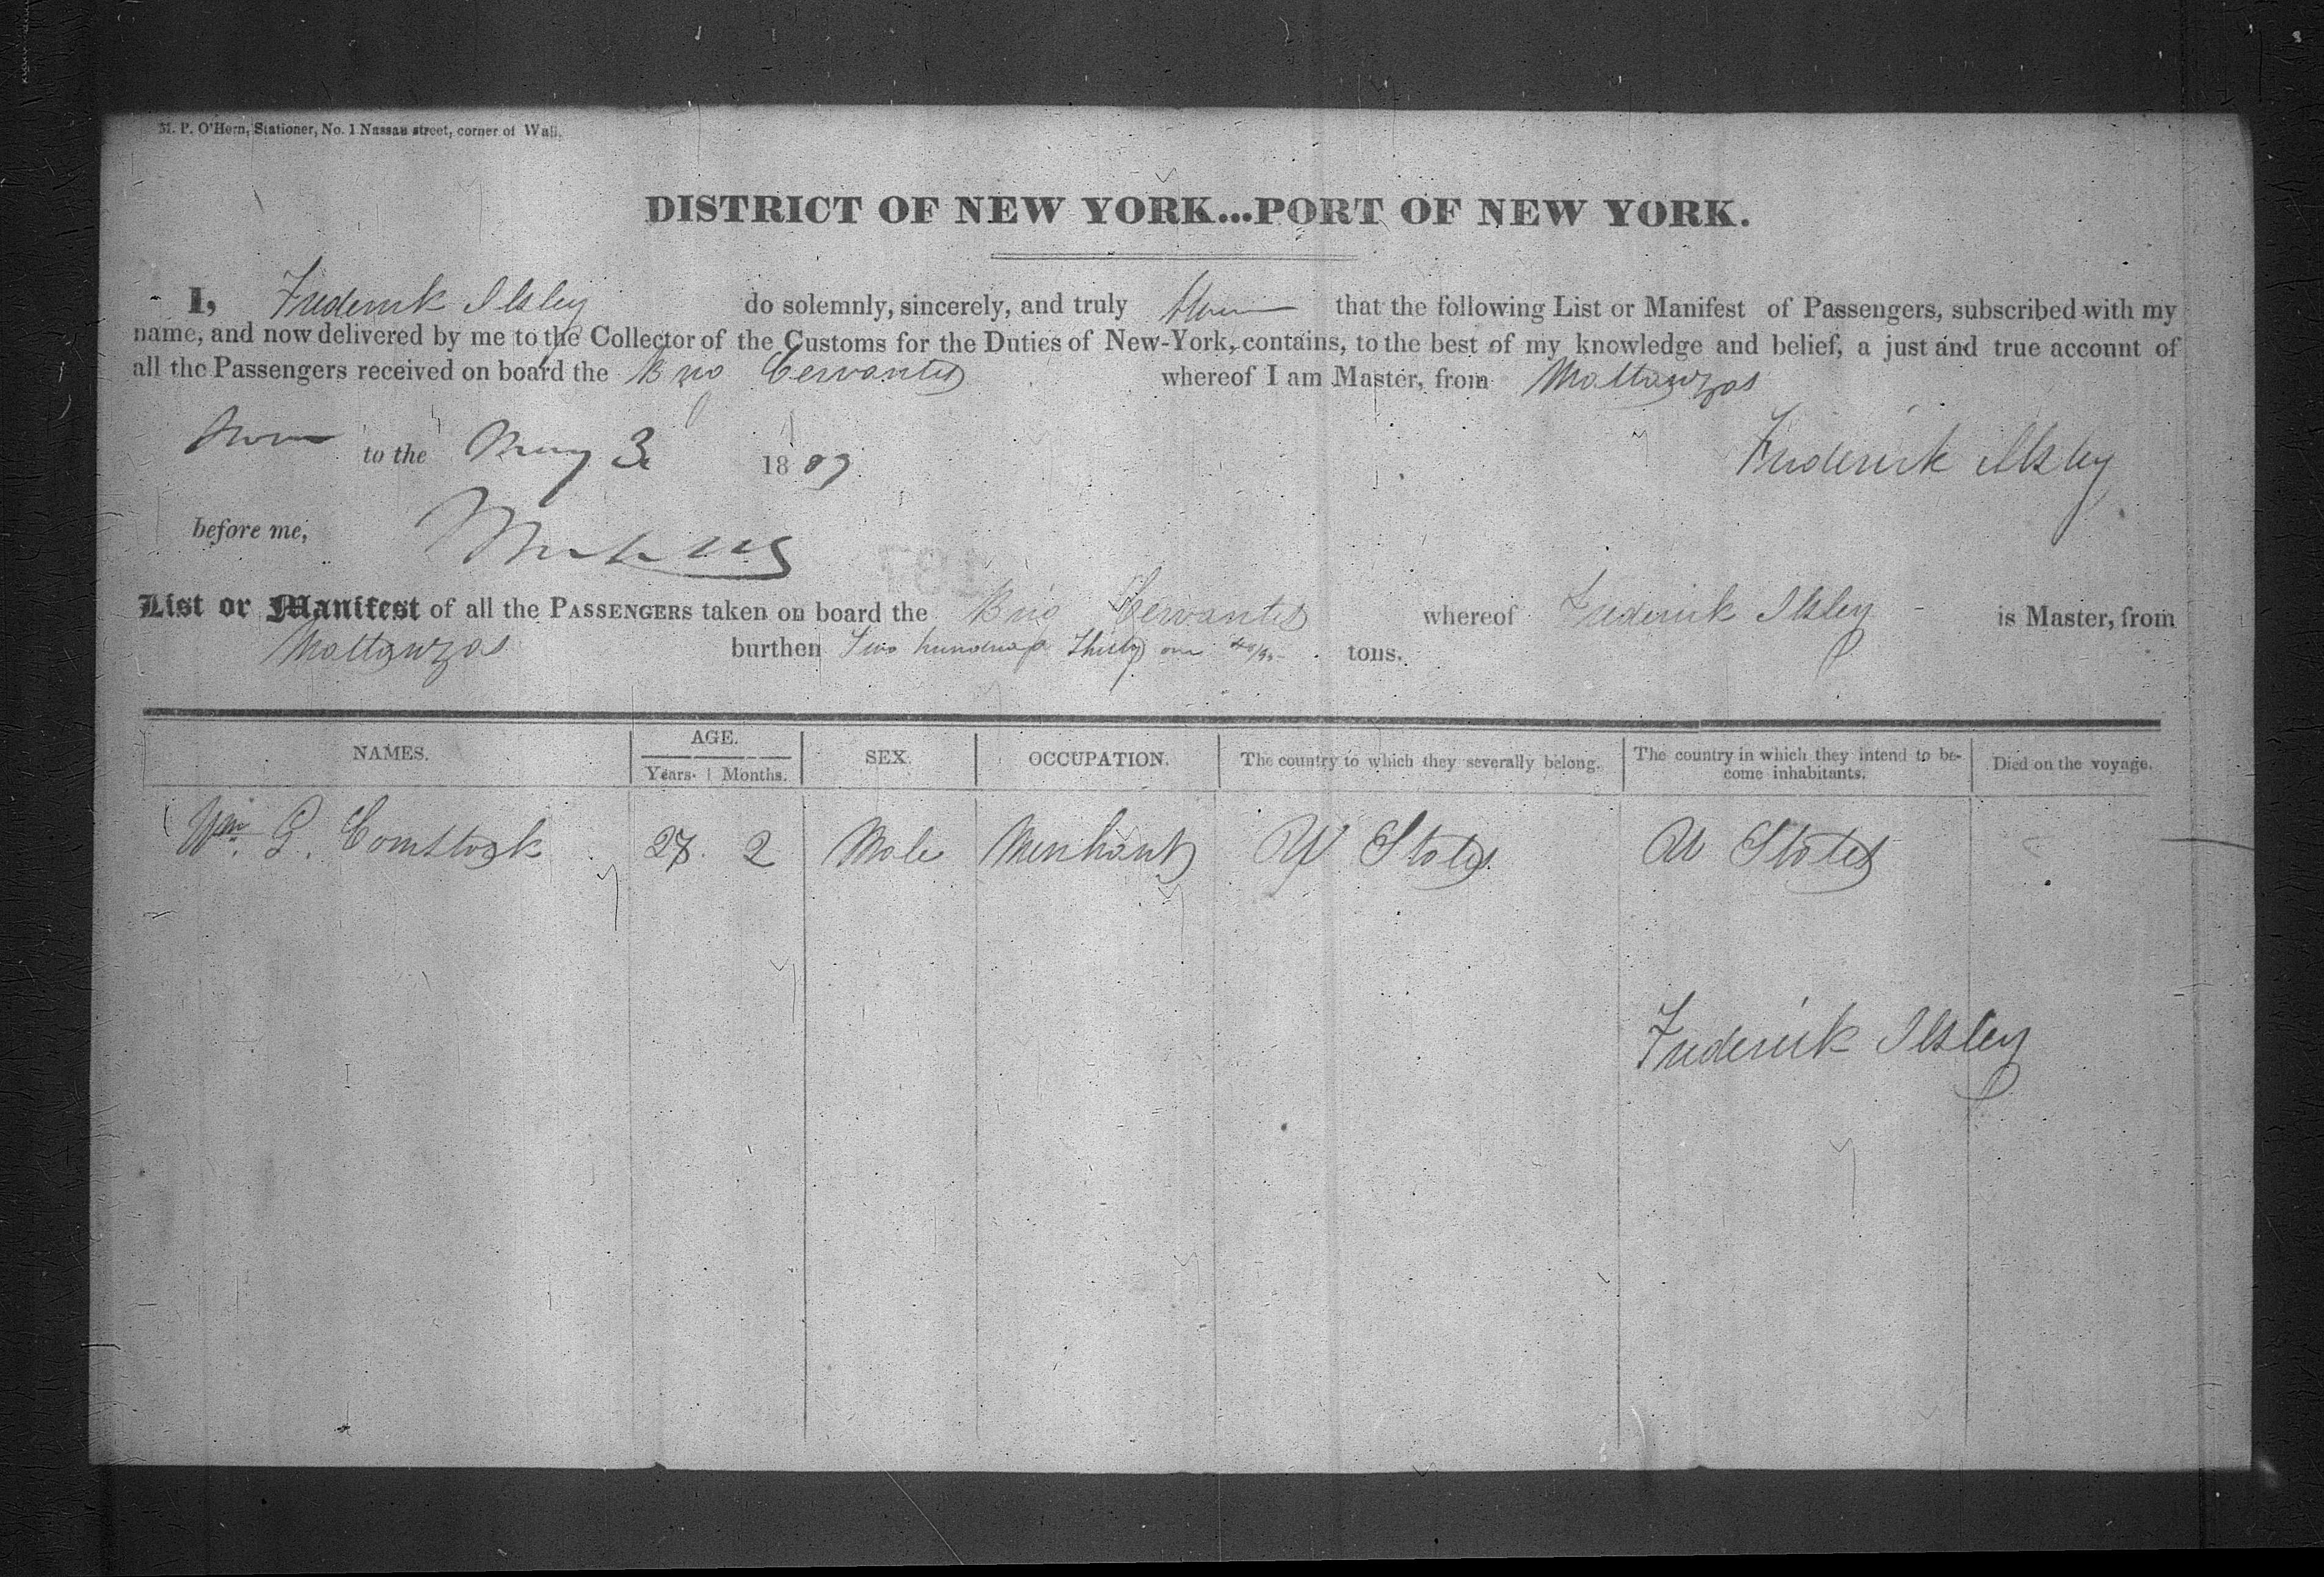 M. P. O'Hern, Stationer, No. 1 Nassau street, corner of Wall.
DISTRICT OF NEW YORK...PORT OF NEW YORK.
I, Frederick Ilsley do solemnly, sincerely, and truly Swear that the following List or Manifest of Passengers, subscribed with my
name, and now delivered by me to the Collector of the Customs for the Duties of New-York, contains, to the best of my knowledge and belief, a just and true account of
all the Passengers received on board the Brig Cervantes whereof I am Master, from Mattanzas
Sworn to the May 3 18
Frederick Ilsley
before me,
List or Manifest of all the PASSENGERS taken on board the Brig Cervantes whereof Frederick Ilsley is Master, from
Mattanzas burthen Two hundred Thirty one tons.
NAMES. AGE. SEX. OCCUPATION. The country to which they severally belong. The country in which they intend to be- Died on the voyage.
Years. Months. come inhabitants.
Wm. G. Comstock 27. 2 Male Merchant U States U States
Frederick Ilsley